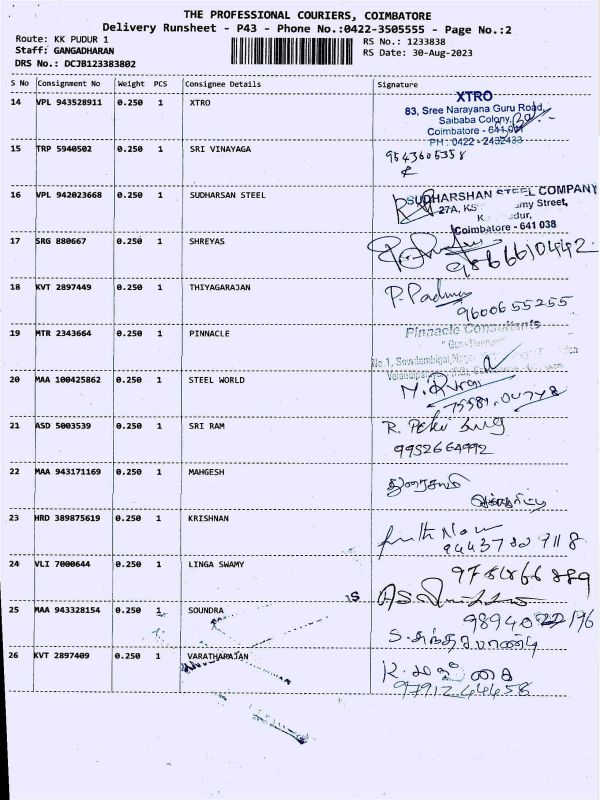 THE PROFESSIONAL COURIERS, COIMBATORE
Delivery Runsheet - P43 - Phone No.:0422-3505555 - Page No.:2
Route: KK PUDUR 1 RS No.: 1233838
Staff: GANGADHARAN RS Date: 30-Aug-2023
DRS No.: DCJB123383802
S No Consignment No Weight PCS Consignee Details Signature
14 VPL 943528911 0.250 1 XTRO
XTRO
83, Sree Narayana Guru Road,
Saibaba Colony,
Coimbatore - 641
PH : 0422 - 2432433
15 TRP 5940502 0.250 1 SRI VINAYAGA
9543605358
16 VPL 942023668 0.250 1 SUDHARSAN STEEL
SUDHARSHAN STEEL COMPANY
27A, KS my Street,
K. dur,
Coimbatore - 641 038
17 SRG 880667 0.250 1 SHREYAS
98666104492
18 KVT 2897449 0.250 1 THIYAGARAJAN
P. Padma
9600655255
19 MTR 2343664 0.250 1 PINNACLE
Pinnacle Consultants
No.1, Sowdambigai
20 MAA 100425862 0.250 1 STEEL WORLD
21 ASD 5003539 0.250 1 SRI RAM
R.
9952664992
22 MAA 943171169 0.250 1 MAHGESH
துரைசாமி
23 HRD 389875619 0.250 1 KRISHNAN
24 VLI 7000644 0.250 1 LINGA SWAMY
25 MAA 943328154 0.250 1 SOUNDRA
26 KVT 2897409 0.250 1 VARATHARAJAN
9791244458